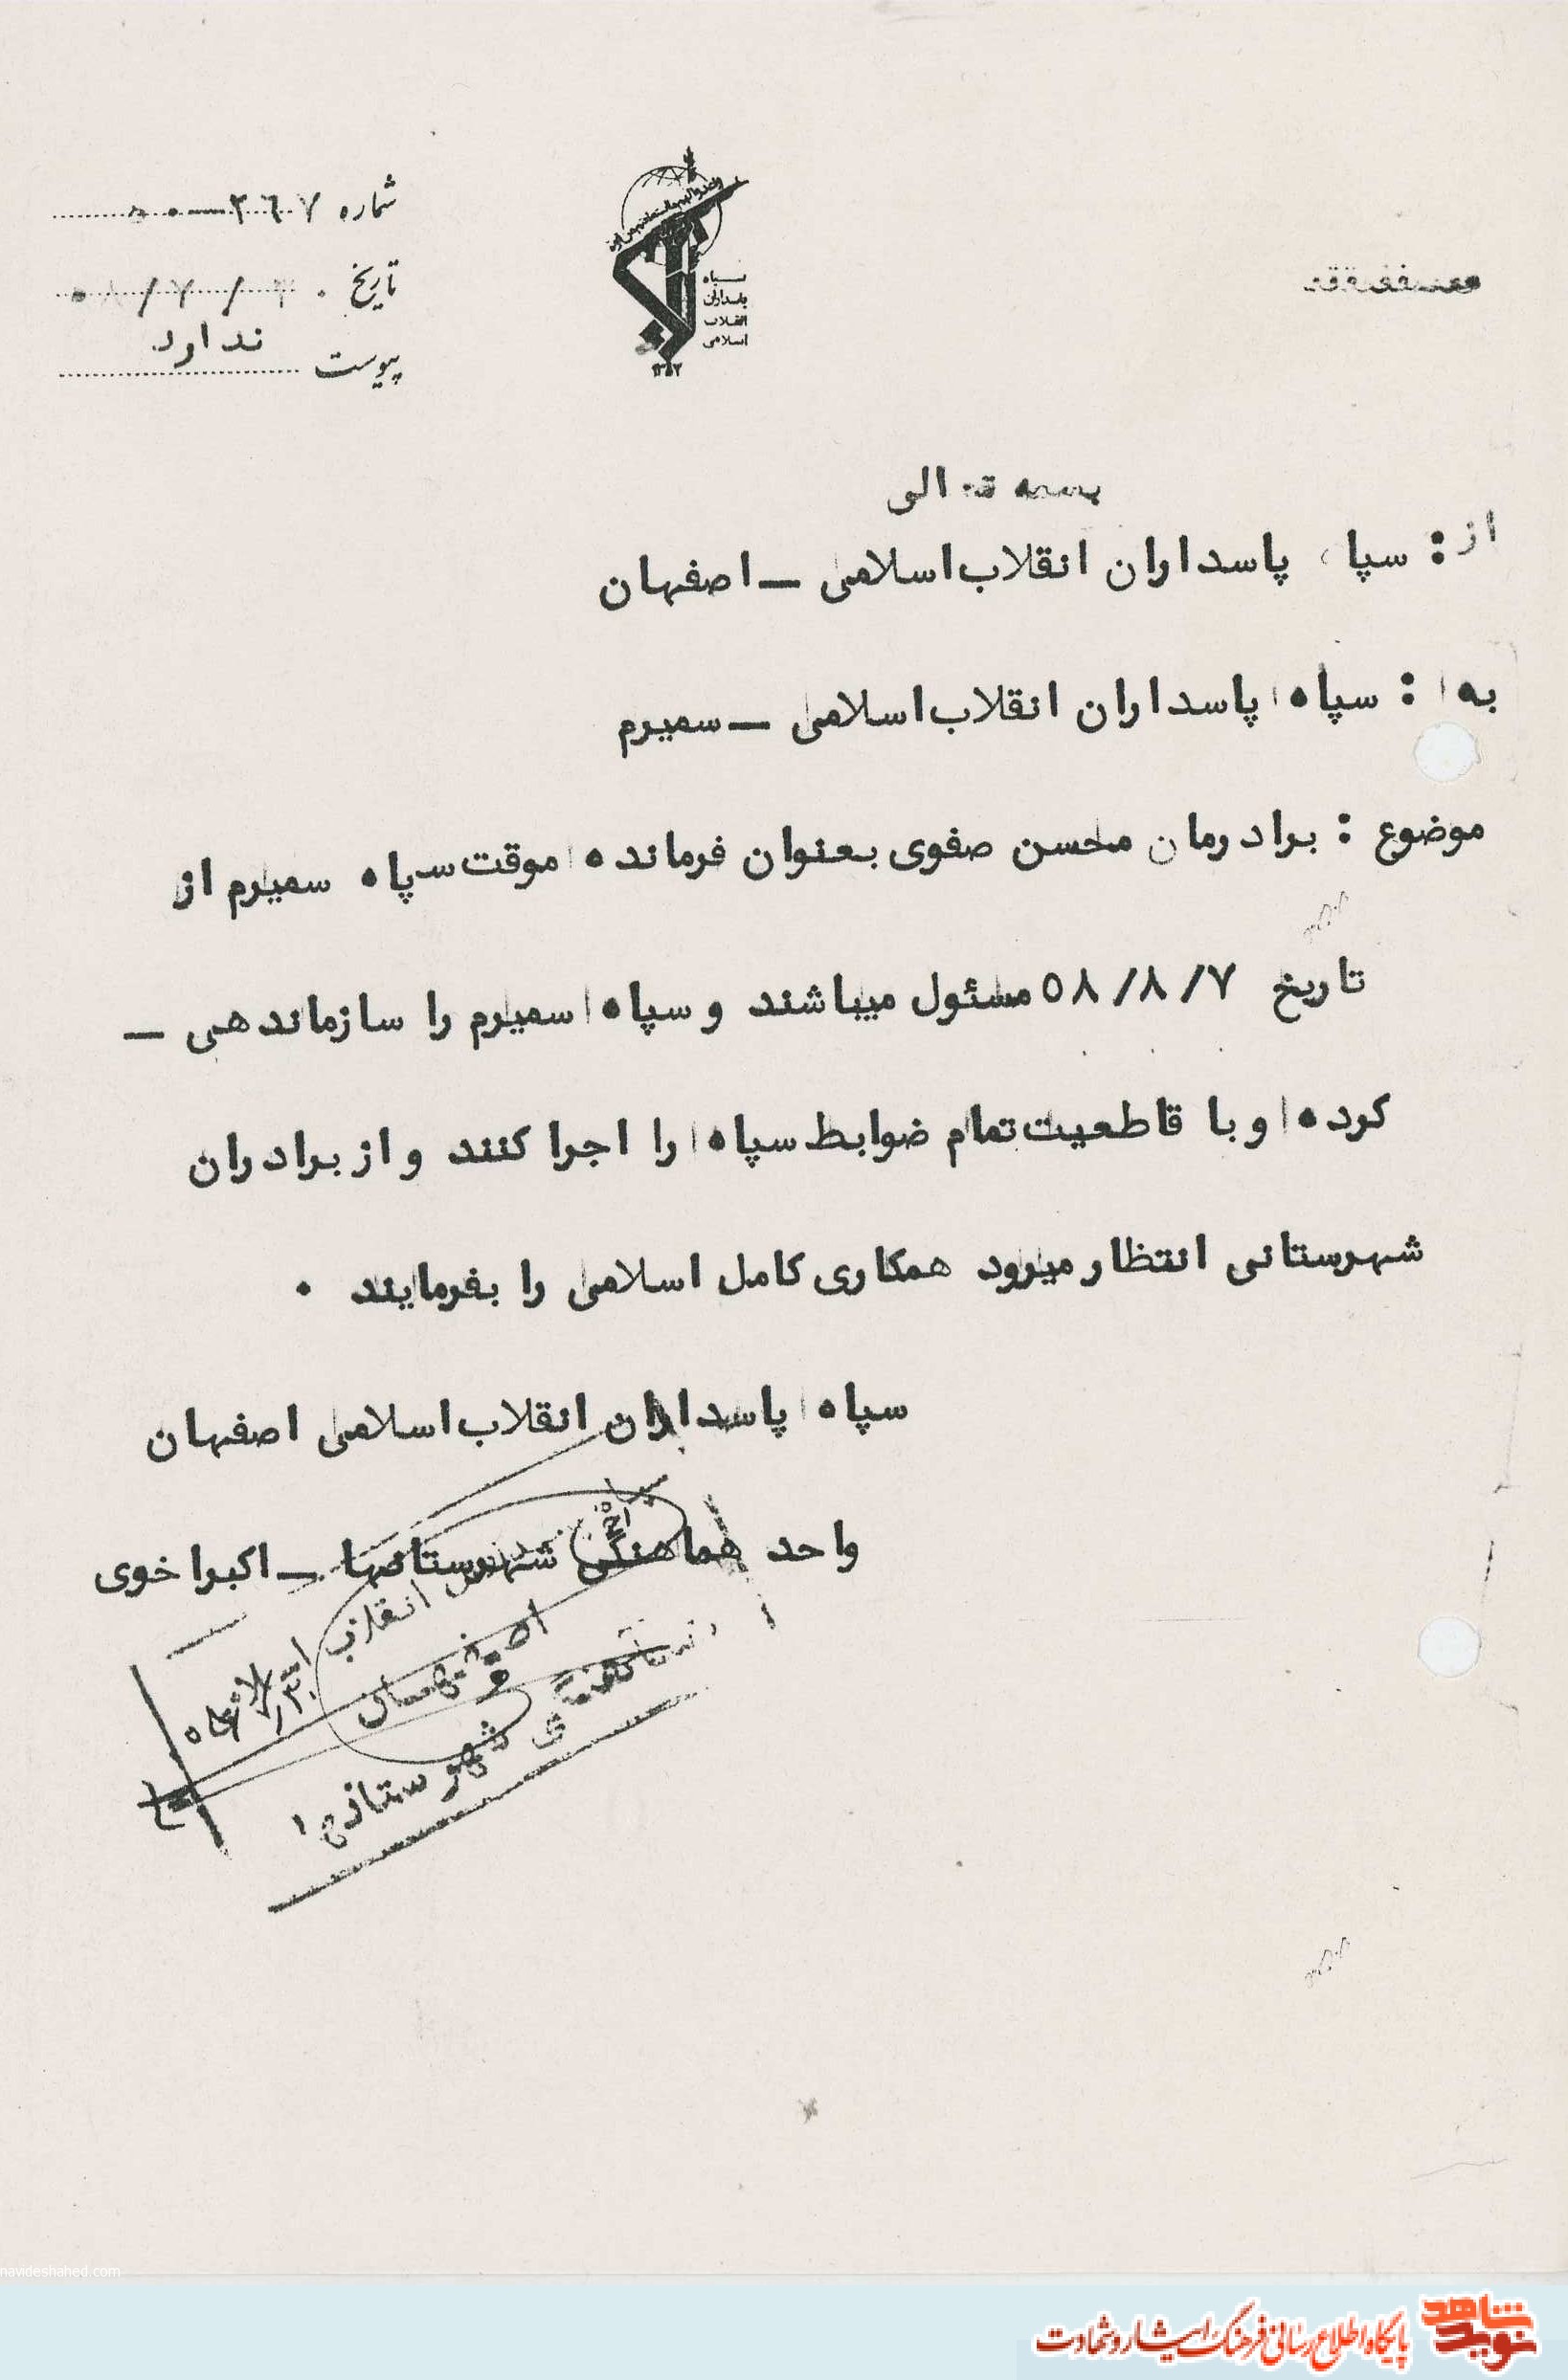 شماره ۳۶۷-۵۰
تاریخ
پیوست ندارد
سپاه
پاسداران
انقلاب
اسلامی
بسمه تعالی
از : سپاه پاسداران انقلاب اسلامی – اصفهان
به : سپاه پاسداران انقلاب اسلامی – سمیرم
موضوع : برادرمان محسن صفوی بعنوان فرمانده موقت سپاه سمیرم از
تاریخ ۵۸/۸/۷ مسئول میباشند و سپاه سمیرم را سازماندهی –
کرده و با قاطعیت تمام ضوابط سپاه را اجرا کنند و از برادران
شهرستانی انتظار میرود همکاری کامل اسلامی را بفرمایند .
سپاه پاسداران انقلاب اسلامی اصفهان
واحد هماهنگی شهرستانها – اکبر اخوی
انقلاب
اصفهان
شهرستانها
navideshahed.com
نوید شاهد
پایگاه اطلاع رسانی فرهنگ ایثار و شهادت